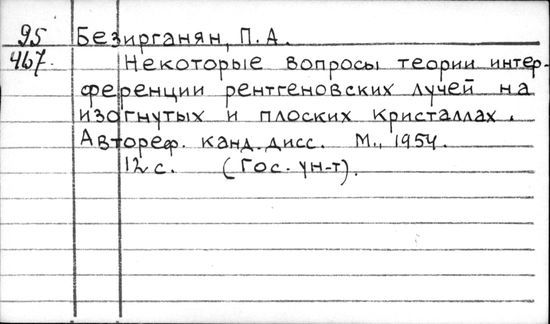 95 Безирганян, П.А.
467. Некоторые вопросы теории интер-
ференции рентгеновских лучей на
изогнутых и плоских кристаллах.
Автореф. канд. дисс. М., 1954.
12 с. (Гос. ун-т).